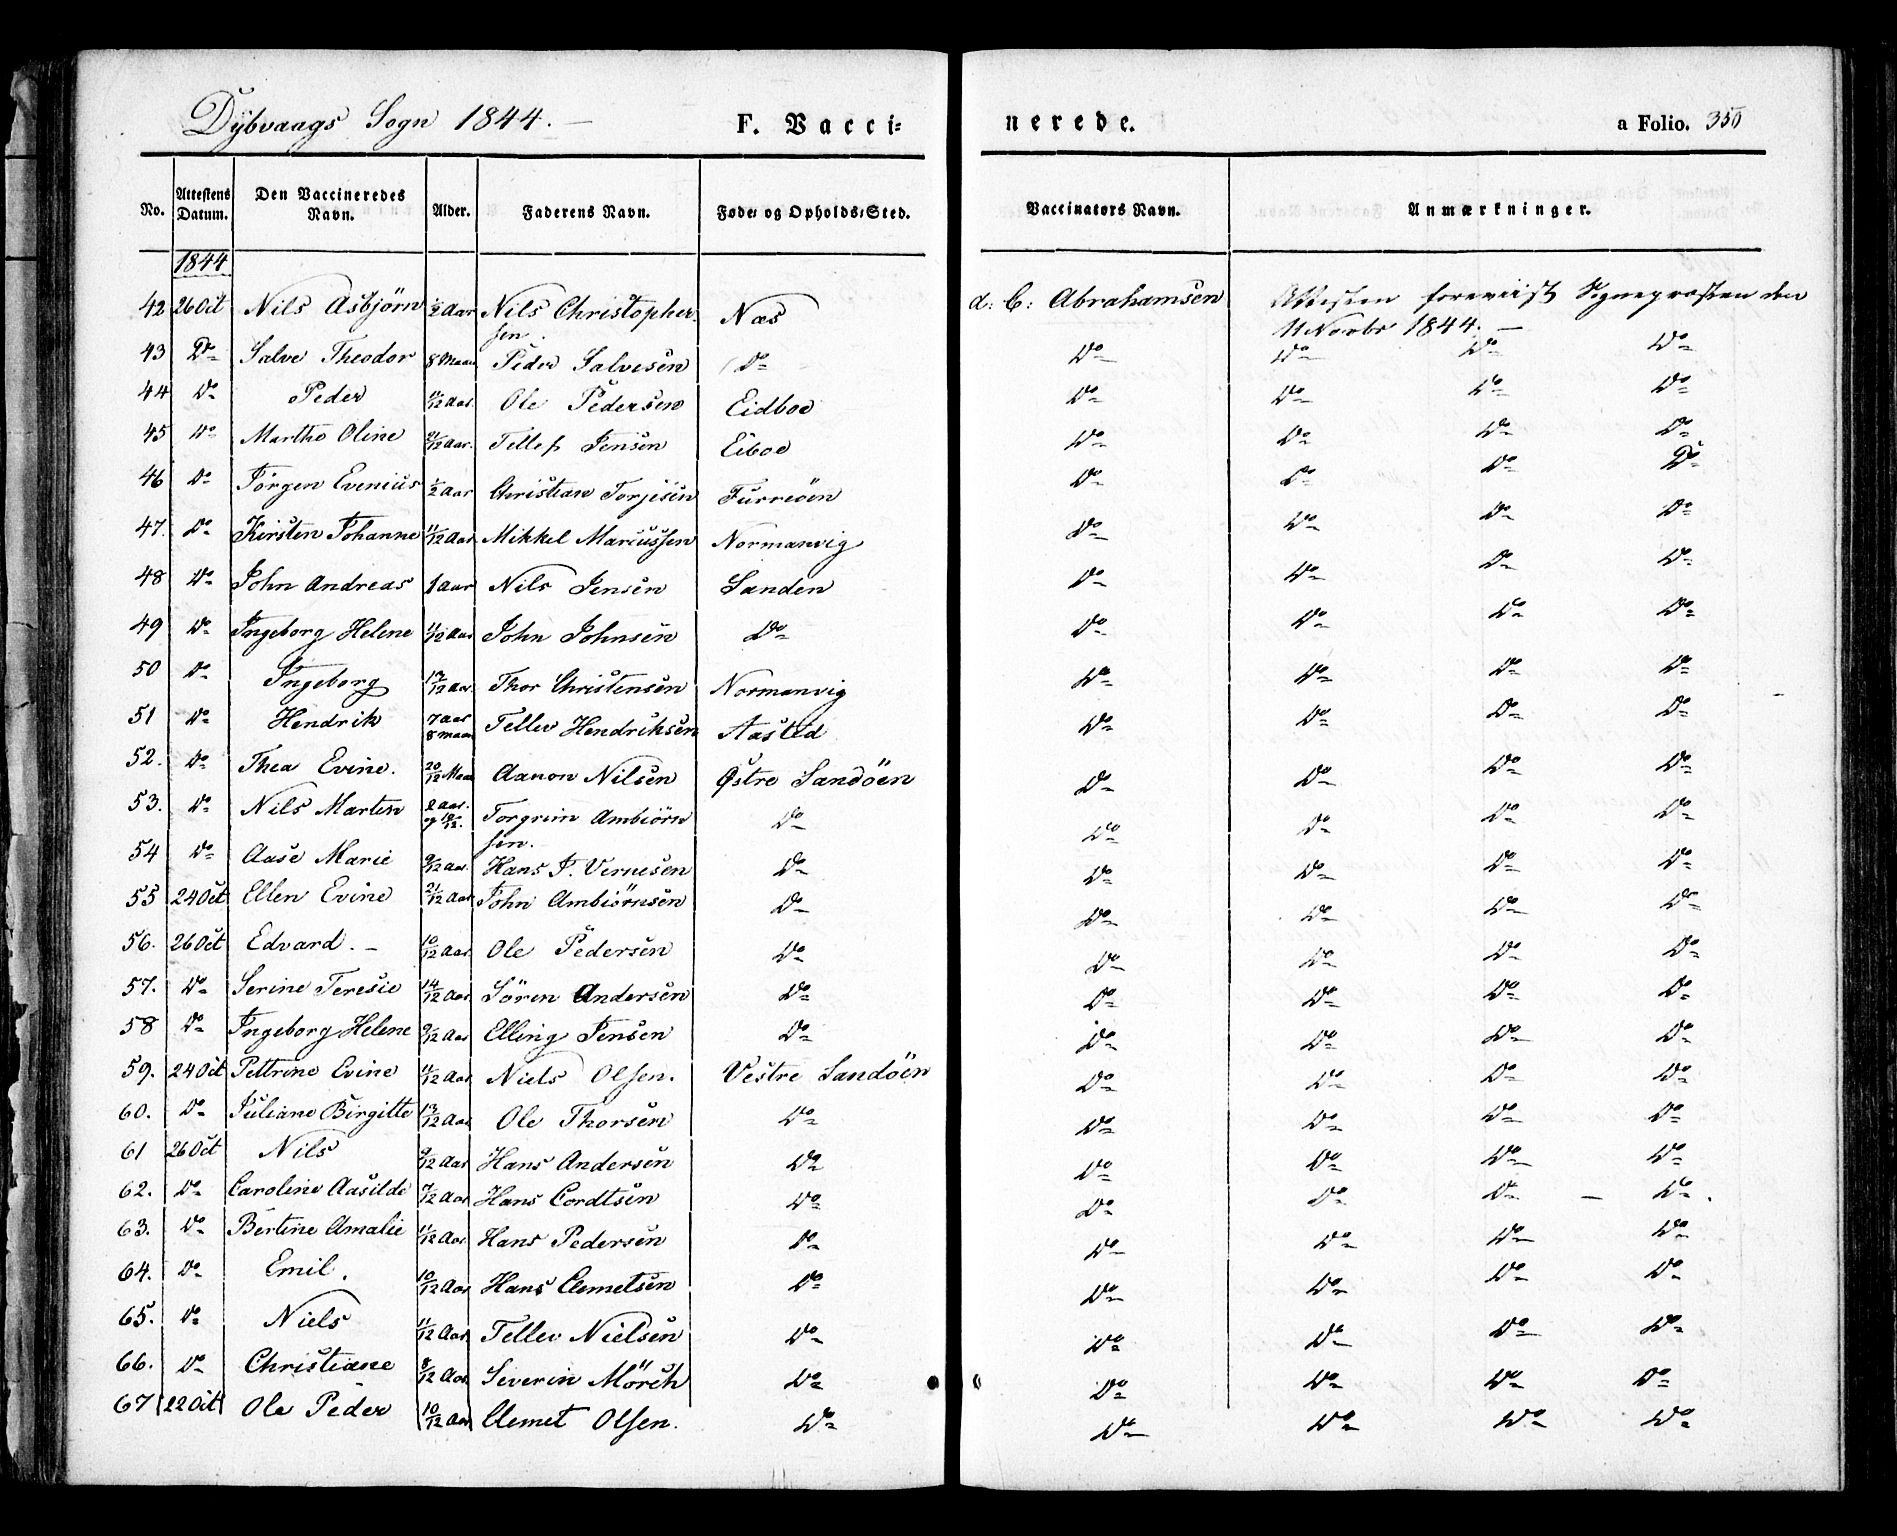 Dybvaags Sogn 1844. — F. Vacci⸗ nerede. a Folio. 350
No. Attestens Datum. Den Vaccineredes Navn. Alder. Faderens Navn. Føde⸗ og Opholds⸗Sted. Vaccinators Navn. Anmærkninger.
1844
42 26 Oct Nils Asbjörn ½ Aar Nils Christopher- Næs d: C: Abrahamsen Attesten foreviist Sogneprosten den
sen. 11 Novbr 1844. —
43 Do Salve Theodor 8 Maan Peder Salvesen Do Do Do Do Do
44 Do Peder 11/12 Aar. Ole Pedersen Eidboe Do Do Do Do
45 Do Marthe Oline 11/12 Aar. Tellef Jensen Eiboe Do Do Do Do
46 Do Jörgen Evenius ½ Aar Christian Torjesen Furreöen Do Do Do Do
47. Do Kirsten Johanne 11/12 Aar Mikkel Marcussen Normanvig Do Do Do Do
48 Do John Andreas 1 Aar Nils Jensen Sanden Do Do Do Do
49 Do Ingeborg Helene 11/12 Aar John Johnsen Do Do Do Do Do
50 Do Ingeborg 17/12 Aar Thor Christensen Normanvig Do Do Do Do
51 Do Hendrik 7 Aar 8 maan Tellev Hendriksen Aasted Do Do Do Do
52. Do Thea Evine. 20/12 Maa Aanon Nilsen Østre Sandöen Do Do Do Do
53. Do Nils Marten 2 Aar. og 10/12. Torgrim Ambiörn Do Do Do Do Do
sen.
54 Do Aase Marie 9/12 Aar. Hans J. Vernesen Do Do Do Do Do
55 24 Oct Ellen Evine 21/12 Aar John Ambiörnsen Do Do Do Do Do
56. 26 Oct Edvard. — 10/12 Aar Ole Pedersen Do Do Do Do Do
57. Do Serine Teresie 14/12 Aar Sören Andersen Do Do Do Do Do
58 Do Ingeborg Helene 9/12 Aar Elling Jensen Do Do Do Do Do
59. 24 Oct Pettrine Evine 11/12 Aar Niels Olsen. Vestre Sandöen Do Do Do Do
60. Do Juliane Birgitte 13/12 Aar Ole Thorsen Do Do Do Do Do
61 26 Oct Nils 9/12 Aar Hans Andersen Do Do Do Do Do
62. Do Caroline Aasilde 7/12 Aar Hans Cordtsen Do Do Do Do — Do.
63. Do Bertine Amalie 11/12 Aar Hans Pedersen Do Do Do Do Do
64. Do Emil. 10/12 Aar Hans Clemetsen Do Do Do Do Do
65. Do Niels 11/12 Aar Tellev Nielsen Do Do Do Do Do
66. Do Christiane 8/12 Aar Severin Mörch Do Do Do Do Do
67 22 Oct Ole Peder 10/12 Aar Clemet Olsen. Do Do Do Do Do